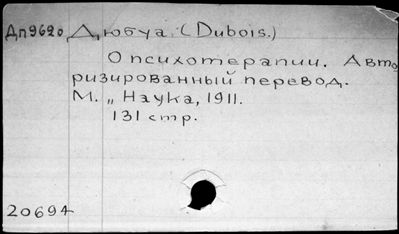 Дп9620 Дюбуа. (Dubois.)
О психотерапии. Авто
ризированный перевод.
М. „Наука, 1911.
131 стр.
20694